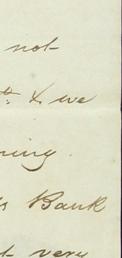 not
th & we
ning.
Bank
very